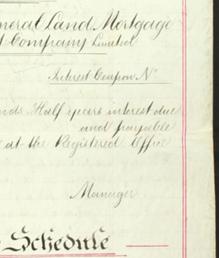 neral Land Mortgage
t Company Limited
Interest Coupon No
nds Half years interest due
and payable
at the Registered Office
Manager
Schedule